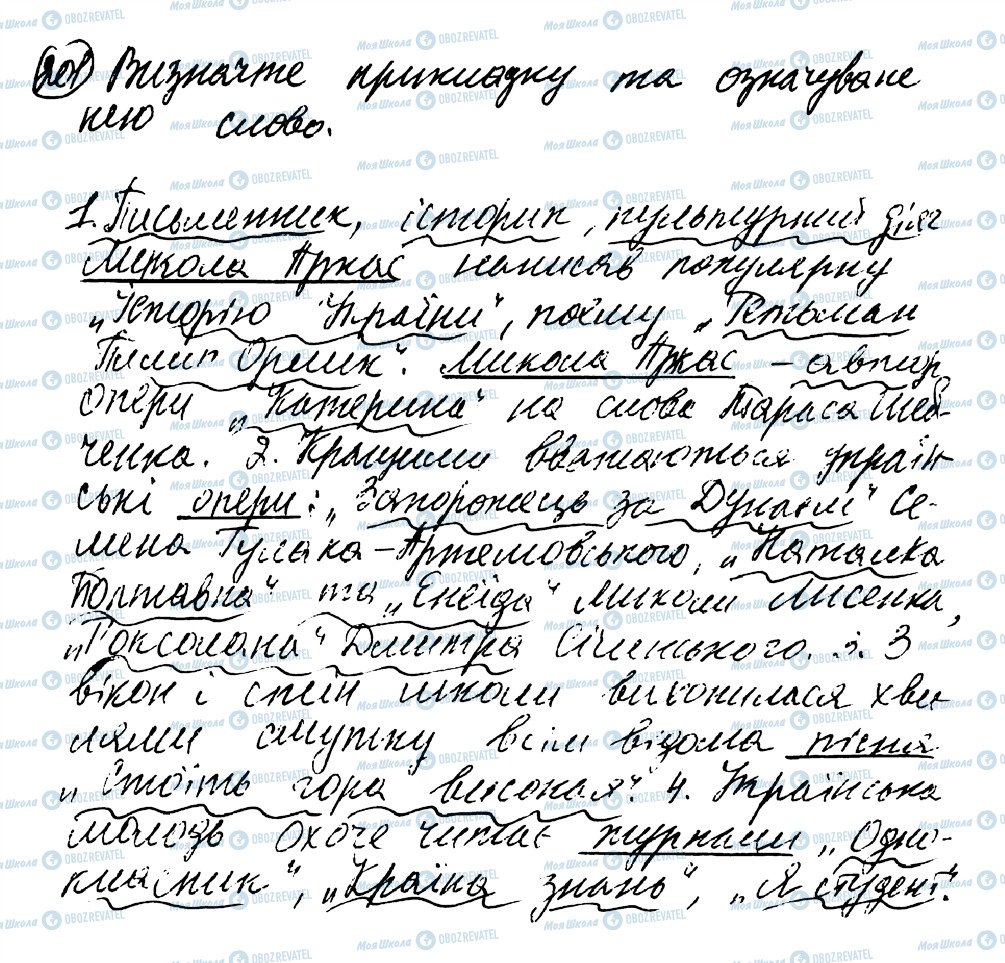 201 Визначте прикладку та означуване
нею слово.
1. Письменник, історик, культурний діяч
Микола Аркас написав популярну
„Історію України", поему „Гетьман
Пилип Орлик". Микола Аркас – автор
опери „Катерина" на слова Тараса Шев-
ченка. 2. Кращими вважаються україн-
ські опери: „Запорожець за Дунаєм" Се-
мена Гулака-Артемовського, „Наталка
Полтавка" та „Енеїда" Миколи Лисенка,
„Роксолана" Дмитра Січинського. 3. З
вікон і стін школи вихопилася хви-
лями смутку всім відома пісня
„Стоїть гора високая". 4. Українська
молодь охоче читає журнали „Одно-
класник", „Країна знань", „Я студент".